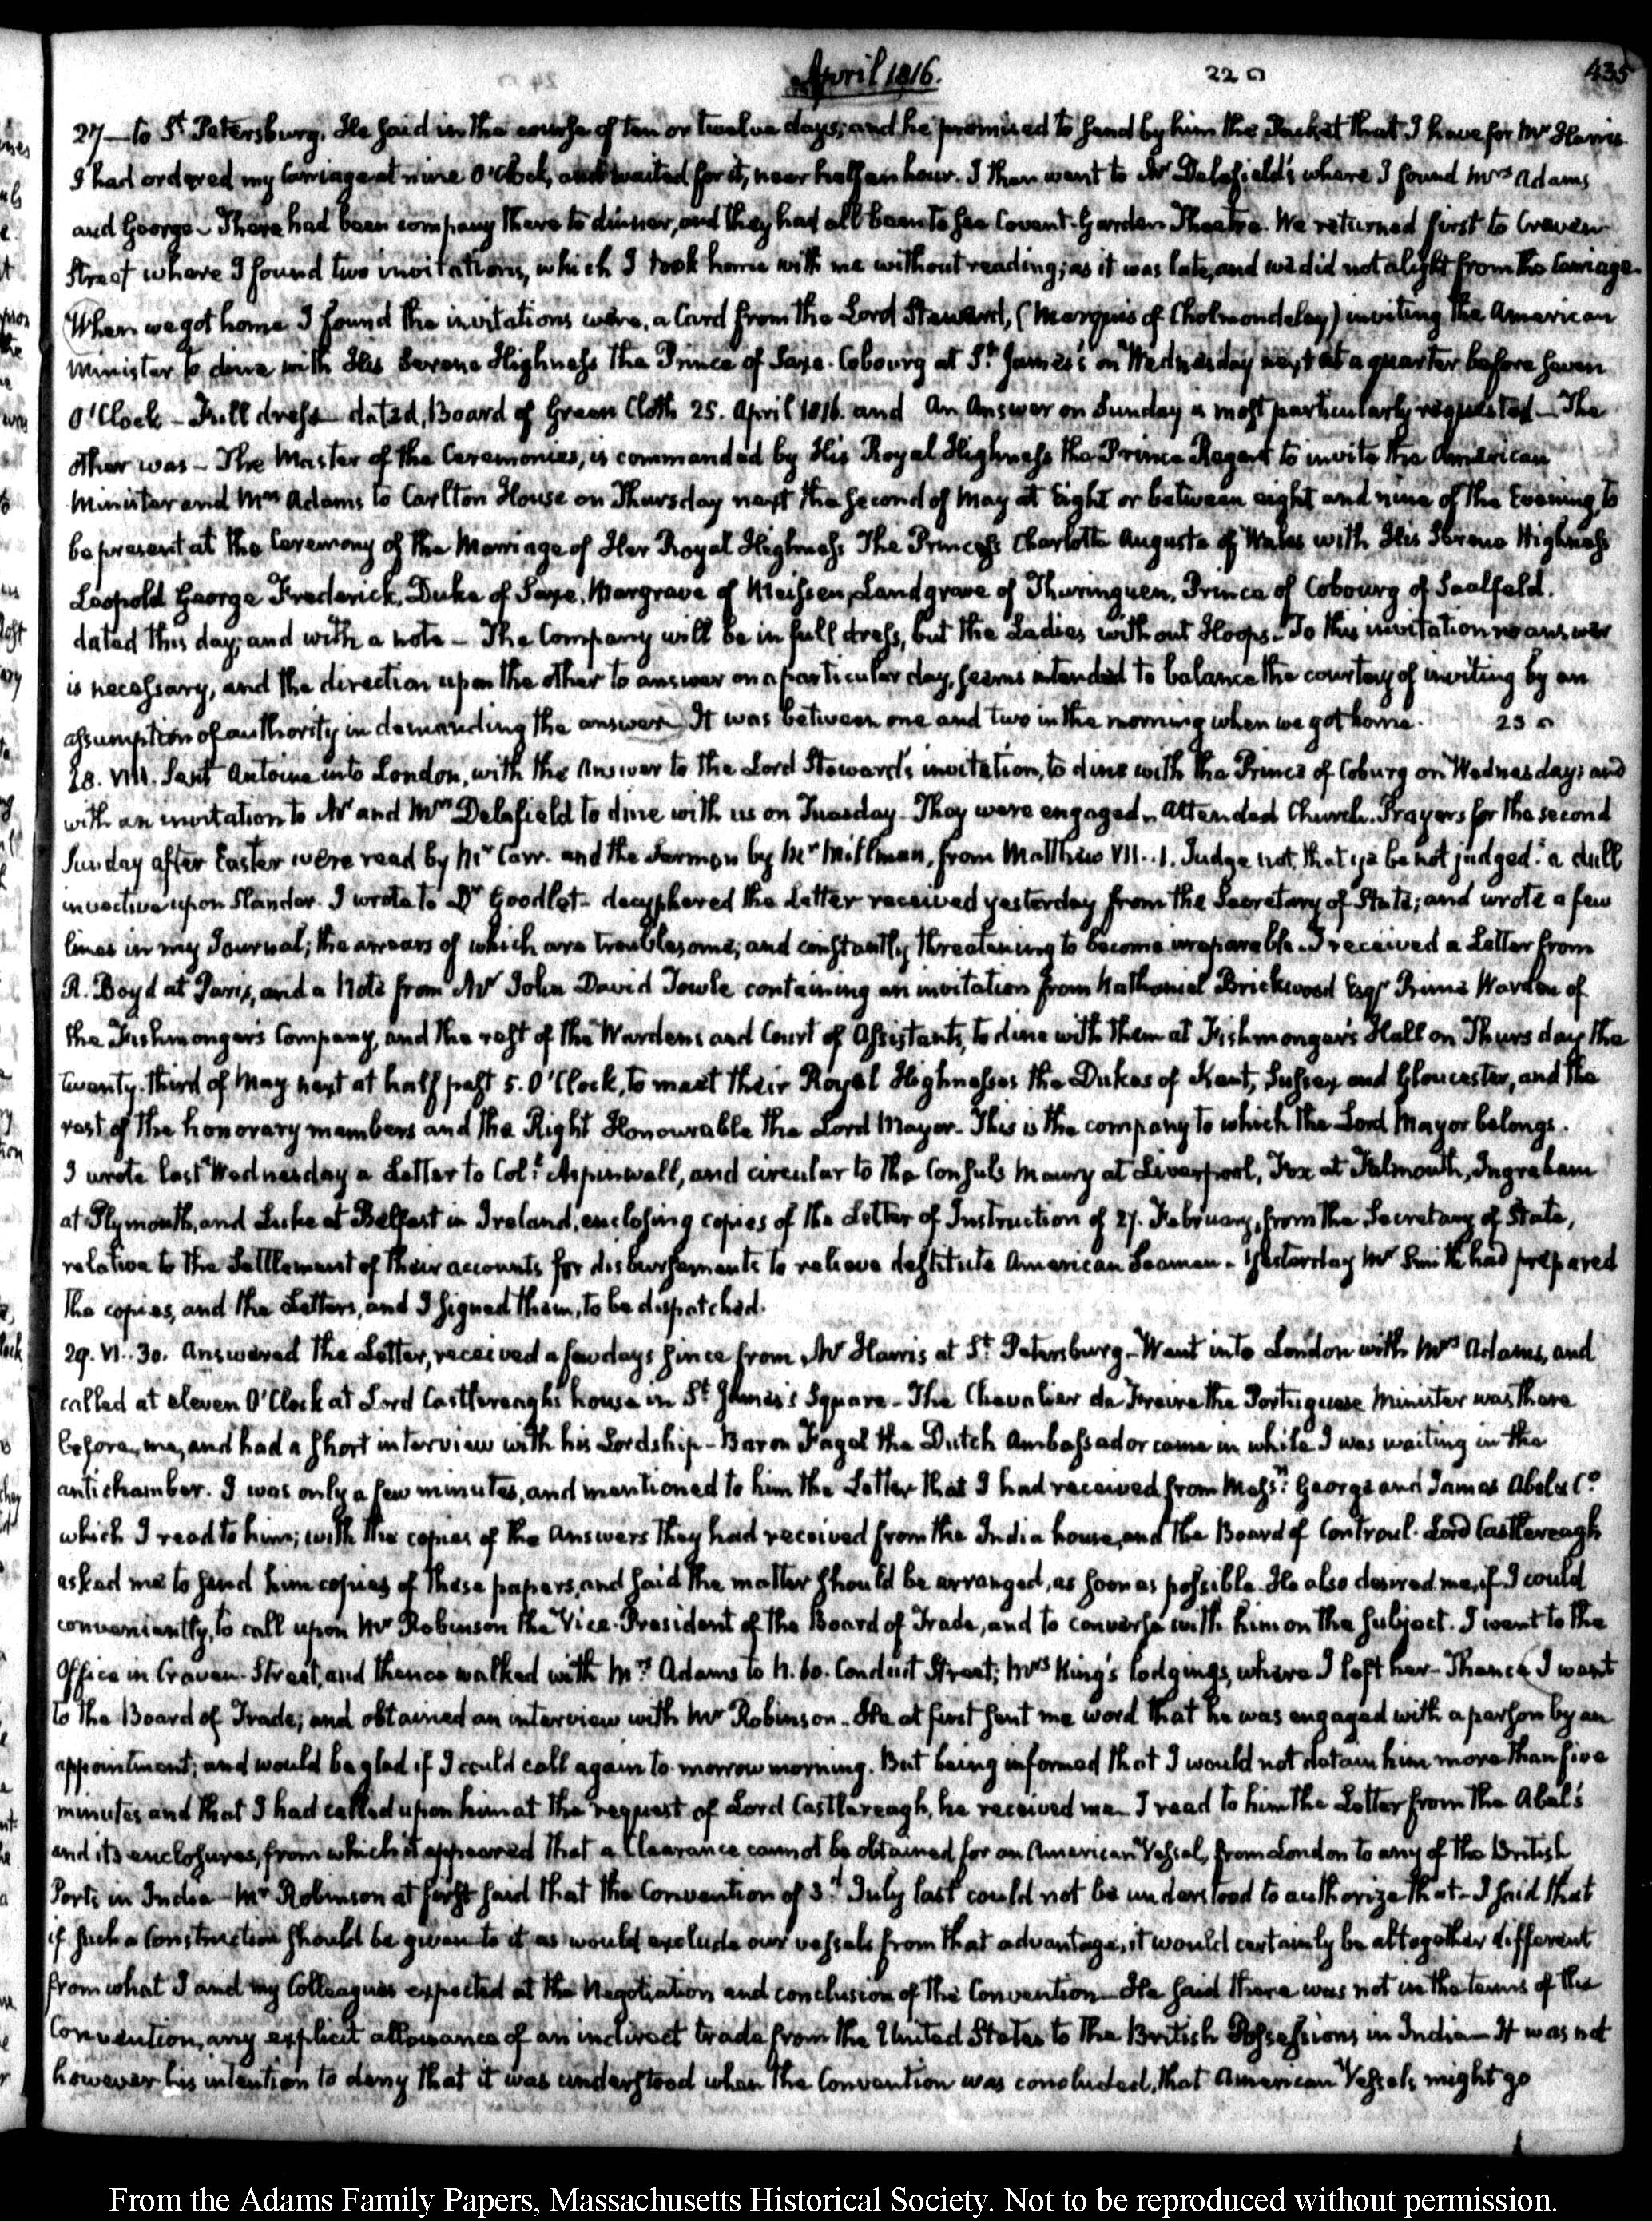 April 1816.
22
435
27 — to St Petersburg. He said in the course of ten or twelve days; and he promised to send by him the Packet that I have for Mr Harris
I had ordered my Carriage at nine O'Clock, and waited for it, near half an hour. I then went to Mr Delafield's where I found Mrs Adams
and George — There had been company there to dinner, and they had all been to see Covent-Garden Theatre. We returned first to Craven
Street where I found two invitations, which I took home with me without reading; as it was late, and we did not alight from the Carriage.
When we got home I found the invitations were, a Card from the Lord Steward, (Marquis of Cholmondeley) inviting the American
Minister to dine with His Serene Highness the Prince of Saxe-Cobourg at St James's on Wednesday next at a quarter before seven
O'Clock — Full dress — dated, Board of Green Cloth 25. April 1816. and An Answer on Sunday is most particularly requested — The
other was — The Master of the Ceremonies, is commanded by His Royal Highness the Prince Regent to invite the American
Minister and Mrs Adams to Carlton House on Thursday next the second of May at Eight or between eight and nine of the Evening, to
be present at the Ceremony of the Marriage of Her Royal Highness The Princess Charlotte Augusta of Wales with His Serene Highness
Leopold George Frederick, Duke of Saxe, Margrave of Meissen, Landgrave of Thuringuen, Prince of Cobourg of Saalfeld.
dated this day; and with a note — The Company will be in full dress, but the Ladies without Hoops — To this invitation no answer
is necessary, and the direction upon the other to answer on a particular day, seems intended to balance the courtesy of inviting by an
assumption of authority in demanding the answer — It was between one and two in the morning when we got home. 23
28. VIII. Sent Antoine into London, with the Answer to the Lord Steward's invitation, to dine with the Prince of Coburg on Wednesday; and
with an invitation to Mr and Mrs Delafield to dine with us on Tuesday — They were engaged — Attended Church. Prayers for the second
Sunday after Easter were read by Mr Carr. and the Sermon by Mr Millman, from Matthew VII..1. Judge not, that ye be not judged: a dull
invective upon Slander. I wrote to Dr Goodlet — decyphered the Letter received yesterday from the Secretary of State; and wrote a few
lines in my Journal; the arrears of which are troublesome; and constantly threatening to become irreparable. I received a Letter from
R. Boyd at Paris, and a Note from Mr John David Towle containing an invitation from Nathaniel Brickwood Esqr Prime Warden of
the Fishmonger's Company, and the rest of the Wardens and Court of Assistants, to dine with them at Fishmonger's Hall on Thursday the
twenty-third of May next at half past 5. O'Clock, to meet their Royal Highnesses the Dukes of Kent, Sussex and Gloucester, and the
rest of the honorary members and the Right Honourable the Lord Mayor — This is the company to which the Lord Mayor belongs.
I wrote last Wednesday a Letter to Coll. Aspinwall, and circular to the Consuls Maury at Liverpool, Fox at Falmouth, Ingraham
at Plymouth, and Luke at Belfast in Ireland, enclosing copies of the Letter of Instruction of 27. February, from the Secretary of State,
relative to the Settlement of their accounts for disbursements to relieve destitute American Seamen — Yesterday Mr Smith had prepared
the copies, and the Letters, and I signed them, to be dispatched.
29. VI..30. Answered the Letter, received a few days since from Mr Harris at St Petersburg — Went into London with Mrs Adams, and
called at eleven O'Clock at Lord Castlereagh's house in St James's Square — The Chevalier de Freire the Portuguese Minister was there
before me, and had a short interview with his Lordship — Baron Fagel the Dutch Ambassador came in while I was waiting in the
antichamber. I was only a few minutes, and mentioned to him the Letter that I had received from Messrs George and James Abel & Co
which I read to him; with the copies of the Answers they had received from the India house, and the Board of Controul. Lord Castlereagh
asked me to send him copies of these papers, and said the matter should be arranged, as soon as possible. He also desired me, if I could
conveniently, to call upon Mr Robinson the Vice-President of the Board of Trade, and to converse with him on the subject. I went to the
Office in Craven-Street, and thence walked with Mrs Adams to N. 60. Conduit Street; Mrs King's lodgings, where I left her — Thence I went
to the Board of Trade; and obtained an interview with Mr Robinson — He at first sent me word that he was engaged with a person by an
appointment; and would be glad if I could call again to-morrow morning. But being informed that I would not detain him more than five
minutes and that I had called upon him at the request of Lord Castlereagh, he received me — I read to him the Letter from the Abel's
and its enclosures, from which it appeared that a Clearance cannot be obtained for an American Vessel, from London to any of the British
Ports in India — Mr Robinson at first said that the Convention of 3d July last could not be understood to authorize that — I said that
if such a Construction should be given to it as would exclude our vessels from that advantage, it would certainly be altogether different
from what I and my Colleagues expected at the Negotiation and conclusion of the Convention — He said there was not in the terms of the
Convention, any explicit allowance of an indirect trade from the United States to the British Possessions in India — It was not
however his intention to deny that it was understood when the Convention was concluded, that American Vessels might go
From the Adams Family Papers, Massachusetts Historical Society. Not to be reproduced without permission.